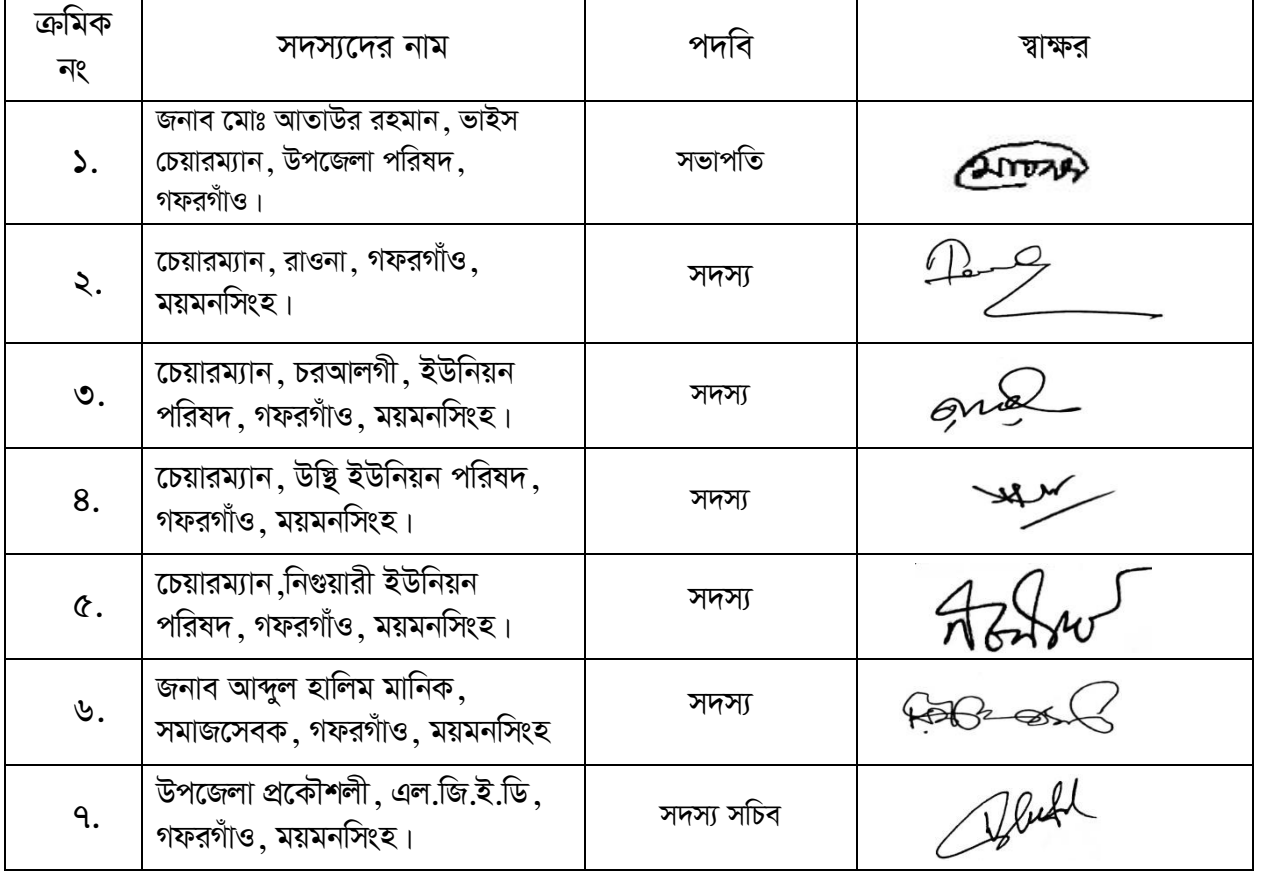 ক্রমিক
নং
সদস্যদের নাম
পদবি
স্বাক্ষর
১.
জনাব মোঃ আতাউর রহমান, ভাইস
চেয়ারম্যান, উপজেলা পরিষদ,
গফরগাঁও।
সভাপতি
২.
চেয়ারম্যান, রাওনা, গফরগাঁও,
ময়মনসিংহ।
সদস্য
৩.
চেয়ারম্যান, চরআলগী, ইউনিয়ন
পরিষদ, গফরগাঁও, ময়মনসিংহ।
সদস্য
৪.
চেয়ারম্যান, উস্থি ইউনিয়ন পরিষদ,
গফরগাঁও, ময়মনসিংহ।
সদস্য
৫.
চেয়ারম্যান,নিগুয়ারী ইউনিয়ন
পরিষদ, গফরগাঁও, ময়মনসিংহ।
সদস্য
৬.
জনাব আব্দুল হালিম মানিক,
সমাজসেবক, গফরগাঁও, ময়মনসিংহ
সদস্য
৭.
উপজেলা প্রকৌশলী, এল.জি.ই.ডি,
গফরগাঁও, ময়মনসিংহ।
সদস্য সচিব